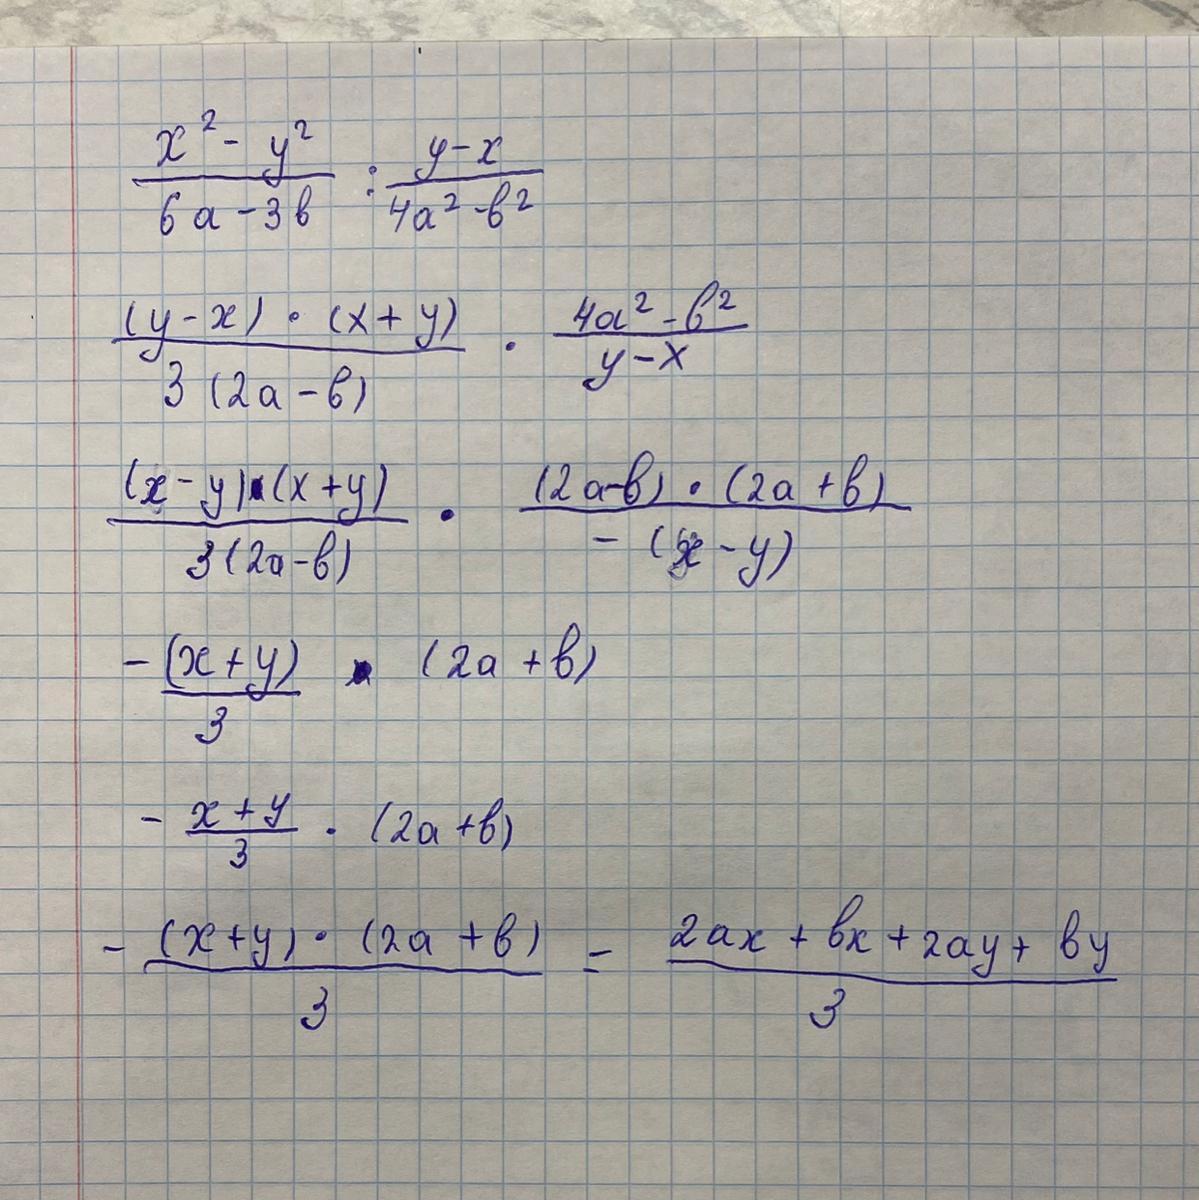 (x² - y²)/(6a - 3b) : (y - x)/(4a² - b²)
((y - x) · (x + y))/(3(2a - b)) · (4a² - b²)/(y - x)
((x - y)·(x + y))/(3(2a - b)) · ((2a - b) · (2a + b))/(-(x - y))
-(x + y)/3 · (2a + b)
- (x + y)/3 · (2a + b)
- ((x + y) · (2a + b))/3 = (2ax + bx + 2ay + by)/3